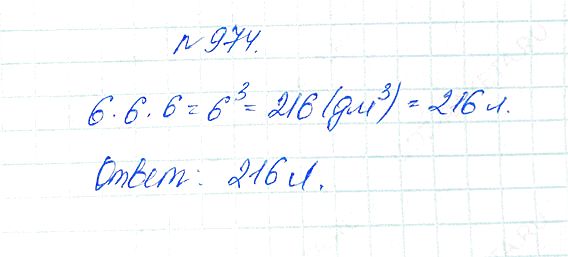 № 974.
6 · 6 · 6 = 6³ = 216 (дм³) = 216 л.
Ответ: 216 л.